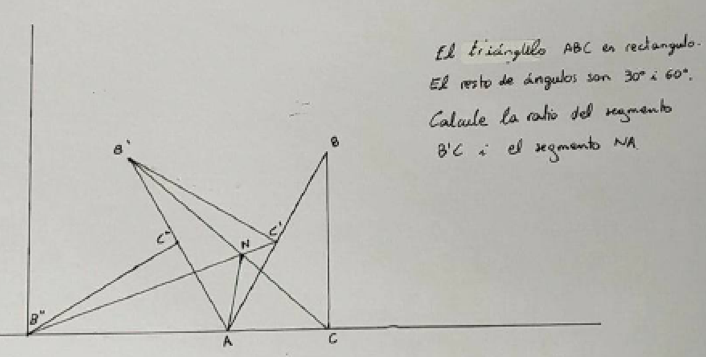 El triángulo ABC es rectangulo.
El resto de ángulos son 30° i 60°.
Calcule la ratio del segmento
B'C i el segmento NA
B'
B
C"
N
C'
B"
A
C